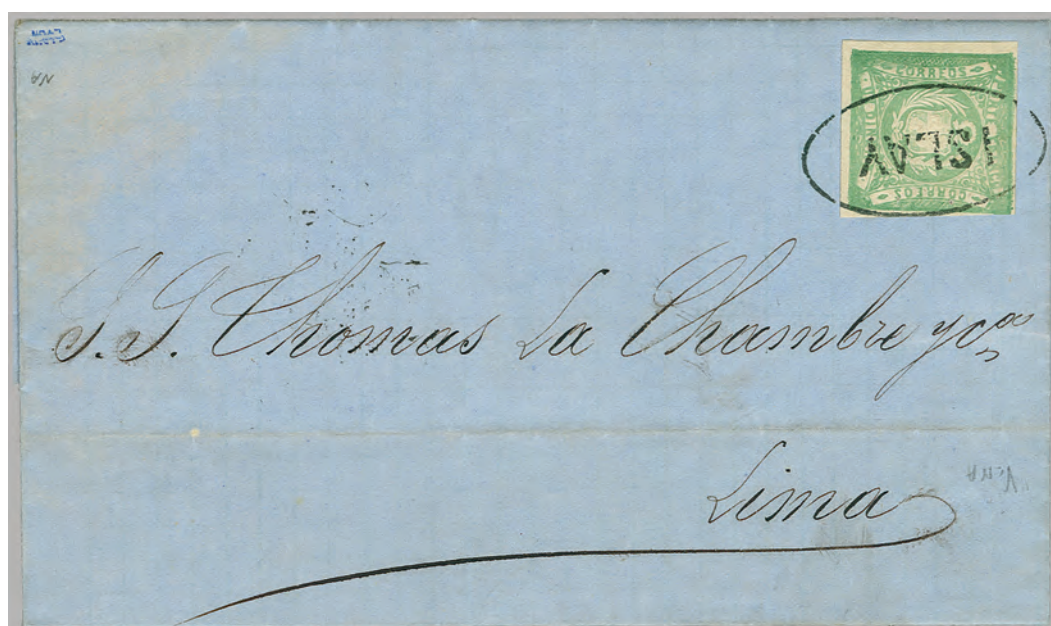 CORREOS
ISLAY
CORREOS
S. S. Thomas La Chambre y ca
Lima